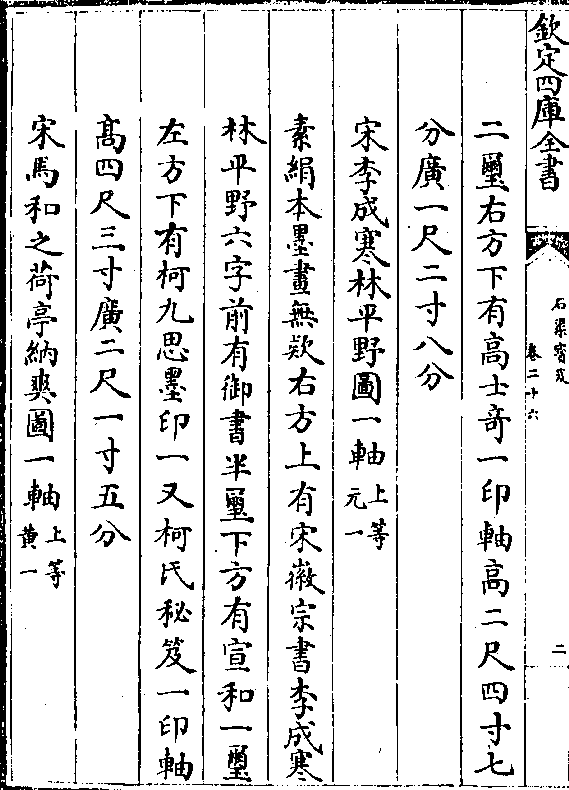 欽定四庫全書
石渠寳笈
卷二十六
二
二璽右方下有高士竒一印軸高二尺四寸七
分廣一尺二寸八分
宋李成寒林平野圖一軸上等元一
素絹本墨畫無欵右方上有宋徽宗書李成寒
林平野六字前有御書半璽下方有宣和一璽
左方下有柯九思墨印一又柯氏秘笈一印軸
髙四尺三寸廣二尺一寸五分
宋馬和之荷亭納爽圖一軸上等黄一